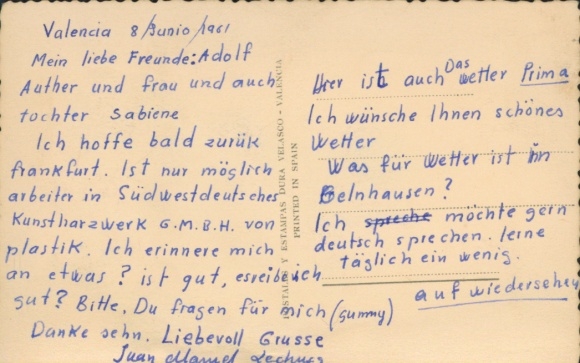 Valencia 8/Junio/1961
Mein liebe Freunde: Adolf
Auther und frau und auch
tochter Sabiene
Ich hoffe bald zurük
frankfurt. Ist nur möglich
arbeiter in Südwestdeutsches
Kunstharzwerk G.M.B.H. von
plastik. Ich erinnere mich
an etwas? ist gut, esreibe ich
gut? Bitte, Du fragen für mich (gummy)
Danke sehn. Liebevoll Grusse
Juan Manuel
POSTALES Y ESTAMPAS DURA VELASCO - VALENCIA
PRINTED IN SPAIN
Hier ist auch Das wetter Prima
Ich wünsche Ihnen schönes
Wetter
Was für Wetter ist in
Gelnhausen?
Ich spreche möchte gern
deutsch sprechen. lerne
täglich ein wenig.
auf wiedersehen